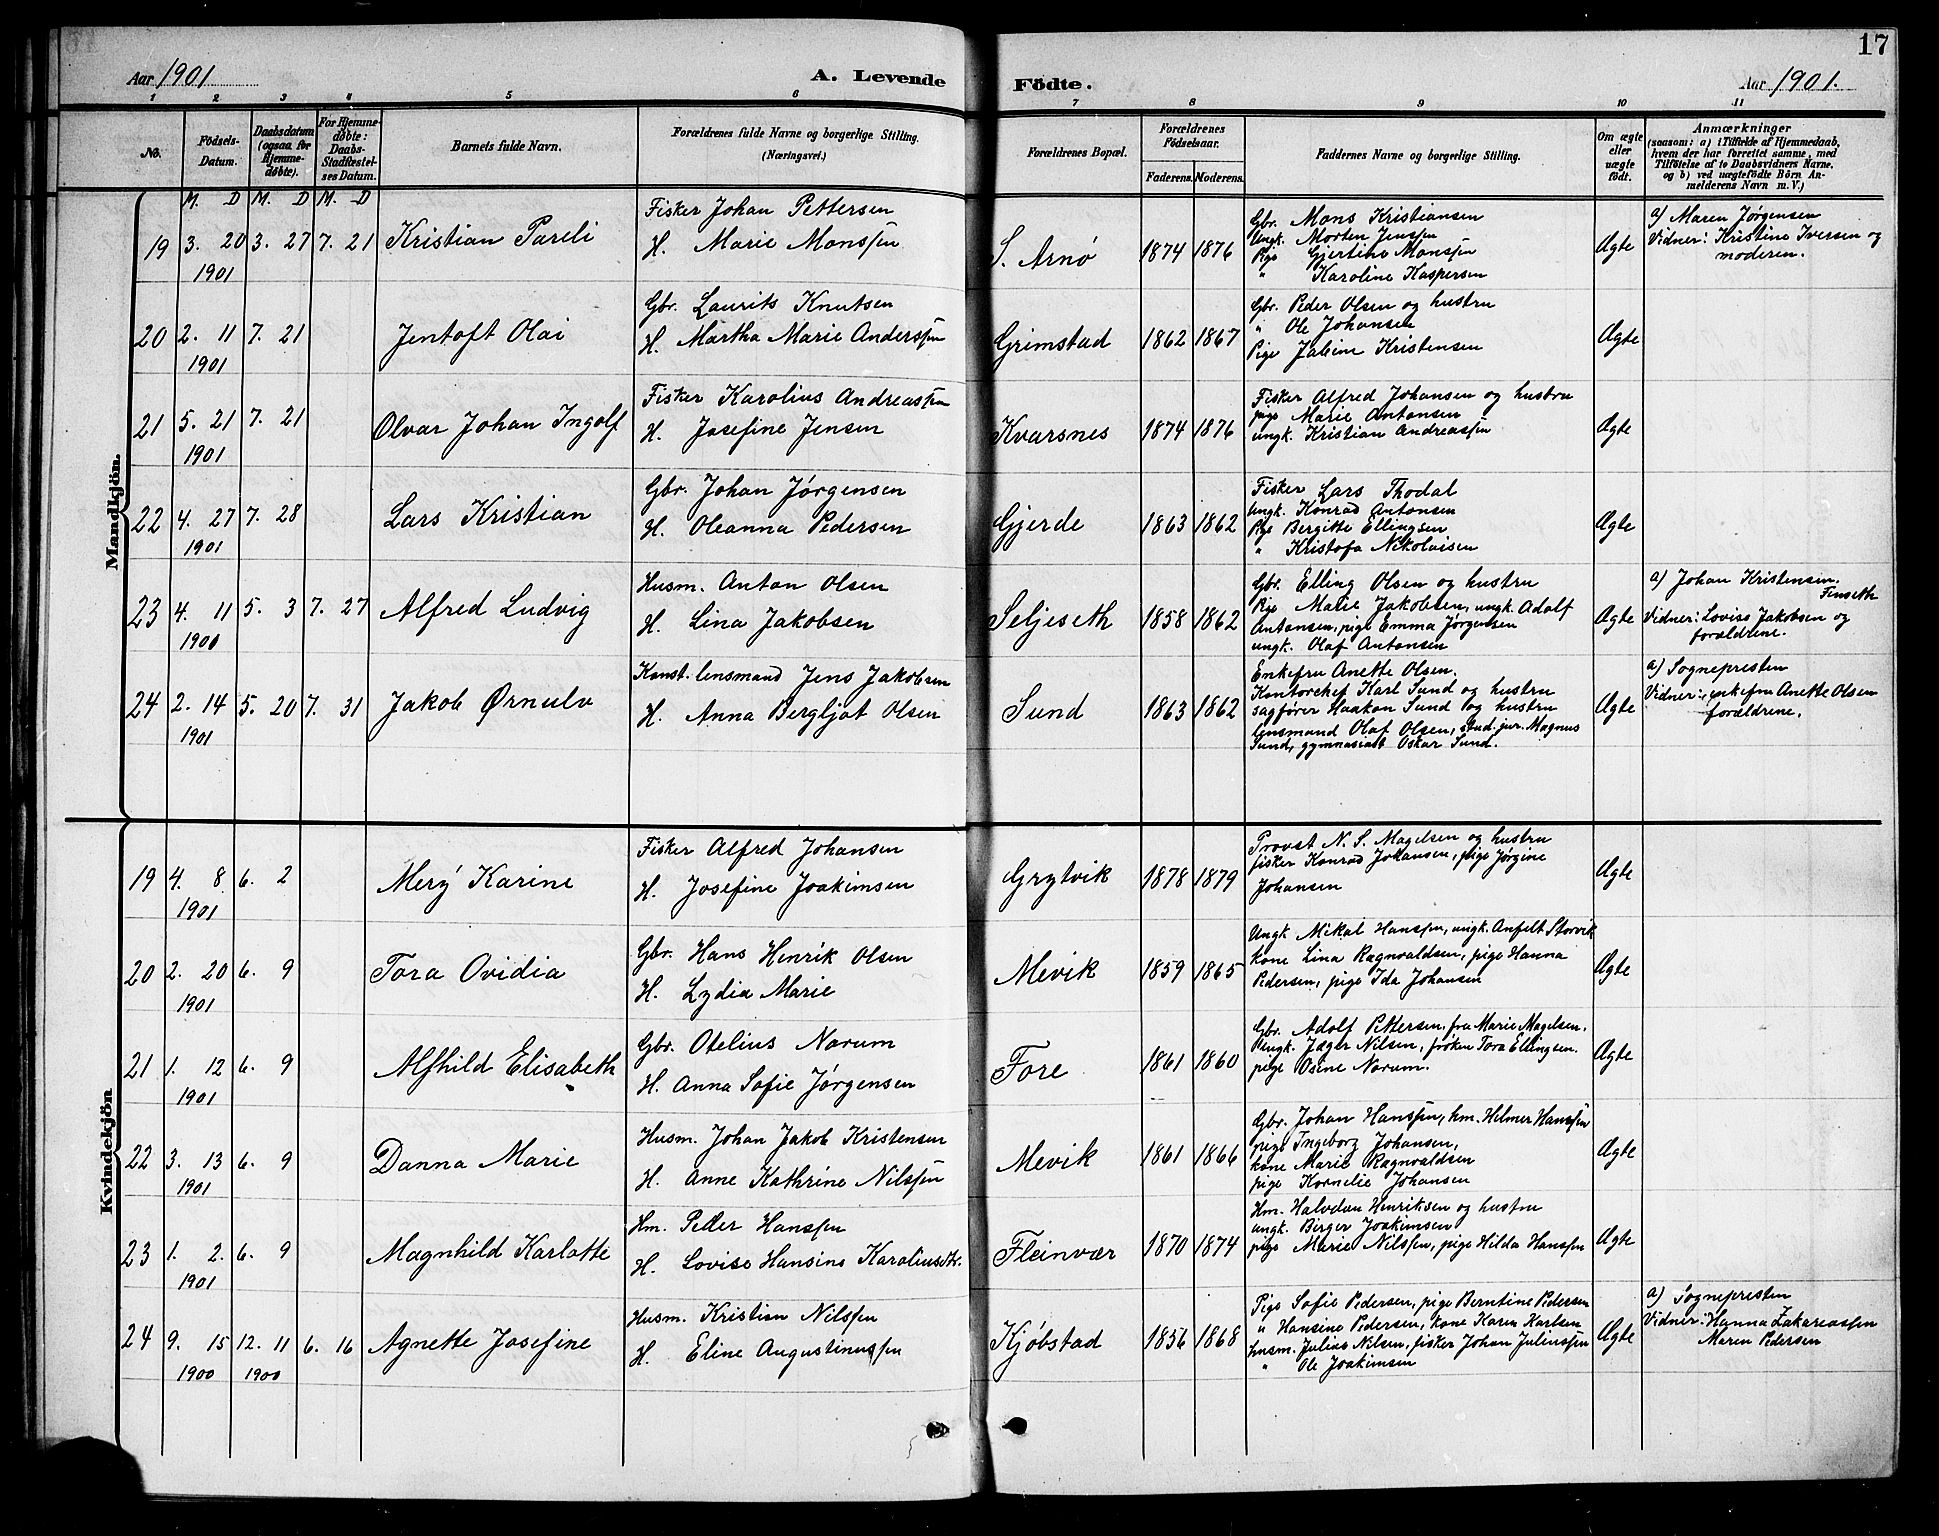 17
Aar 1901
A. Levende
Födte.
Aar 1901.
1 2 3 4 5 6 7 8 9 10 11
No.
Födsels-
Datum.
Daabsdatum
(ogsaa for
Hjemme-
døbte).
For Hjemme-
døbte:
Daabs-
Stadfæstel-
ses Datum.
Barnets fulde Navn.
Forældrenes fulde Navne og borgerlige Stilling.
(Næringsvei.)
Forældrenes Bopæl.
Forældrenes
Födselsaar.
Faderens. Moderens.
Faddernes Navne og borgerlige Stilling.
Om ægte
eller
uægte
født.
Anmærkninger
(saasom: a) i Tilfælde af Hjemmedaab,
hvem der har forrettet samme, med
Tilföielse af to Daabsvidners Navne,
og b) ved uægtefödte Börn An-
melderens Navn m. V.)
M. D M. D M. D
Mandkjön.
19 3. 20 3. 27 7. 21
1901
Kristian Pareli
Fisker Johan Pettersen
H. Marie Monssen
S. Arnø
1874 1876
Gbr. Mons Kristiansen
Ungk. Morten Jenssen
Pige Gjertine Monssen
" Karoline Kaspersen
Ægte
a) Maren Jørgensen
Vidner: Kristine Iversen og
moderen.
20 2. 11 7. 21
1901
Jentoft Olai
Gbr. Laurits Knutsen
H. Martha Marie Anderssen
Grimstad
1862 1867
Gbr. Peder Olsen og hustru
" Ole Johansen
Pige Jakine Kristensen
Ægte
21 5. 21 7. 21
1901
Olvar Johan Ingolf
Fisker Karolius Andreassen
H. Josefine Jensen
Kvarsnes
1874 1876
Fisker Alfred Johansen og hustru
pige Marie Antonsen
ungk. Kristian Andreassen
Ægte
22 4. 27 7. 28
1901
Lars Kristian
Gbr. Johan Jørgensen
H. Oleanna Pedersen
Gjerde
1863 1862
Fisker Lars Thodal
Ungk. Konrad Antonsen
Pige Bergitte Ellingsen
" Kristofa Nikolaisen
Ægte
23 4. 11 5. 3 7. 27
1900
Alfred Ludvig
Husm. Anton Olsen
H. Lina Jakobsen
Seljeseth
1858 1862
Gbr. Elling Olsen og hustru
Pige Marie Jakobsen, ungk. Adolf
Antonsen, pige Emma Jørgensen
ungk. Olaf Antonsen
Ægte
a) Johan Kristensen.
Finseth
Vidner: Lovise Jakobsen og
forældrene.
24 2. 14 5. 20 7. 31
1901
Jakob Ørnulv
Konst. lensmand Jens Jakobsen
H. Anna Bergljot Olsen
Sund
1863 1862
Enkefru Anette Olsen.
Kontorchef Karl Sund og hustru
sagfører Haakon Sund og hustru
lensmand Olaf Olsen, stud. jur. Magnus
Sund, gymnasiast Oskar Sund.
Ægte
a) Sognepresten
Vidner: enkefru Anette Olsen
forældrene.
Kvindekjön
19 4. 8 6. 2
1901
Merý Karine
Fisker Alfred Johansen
H. Josefine Joakimsen
Grytvik
1878 1879
Provst N. S. Magelsen og hustru
fisker Konrad Johansen, pige Jørgine
Johansen
Ægte
20 2. 20 6. 9
1901
Tora Ovidia
Gbr. Hans Henrik Olsen
H. Lydia Marie
Mevik
1859 1865
Ungk Mikal Hanssen, ungk. Anfelt Storvik
kone Lina Ragnvaldsen, pige Hanna
Pedersen, pige Ida Johansen
Ægte
21 1. 12 6. 9
1901
Alfhild Elisabeth
Gbr. Otelius Norum
H. Anna Sofie Jørgensen
Fore
1861 1860
Gbr. Adolf Pettersen, fru Marie Magelsen,
ungk. Jæger Nilsen, frøken Tora Ellingsen.
pige Osine Norum.
Ægte
22 3. 13 6. 9
1901
Danna Marie
Husm. Johan Jakob Kristensen
H. Anne Kathrine Nilssen
Mevik
1861 1866
Gbr. Johan Hanssen, hm. Helmer Hanssen
pige Ingeborg Johansen,
kone Marie Ragnvaldsen
pige Kornelie Johansen
Ægte
23 1. 2. 6. 9
1901
Magnhild Karlotte
Hm. Peder Hanssen
H. Lovise Hansine Karoliusdtr.
Fleinvær
1870 1874
Hm. Halvdan Henriksen og hustru
ungk. Birger Joakimsen
pige Marie Nilssen, pige Hilda Hanssen
Ægte
24 9. 15 12. 11 6. 16
1900 1900
Agnette Josefine
Husm. Kristian Nilssen
H. Eline Augustinussen
Kjøbstad
1856 1868
Pige Sofie Pedersen, pige Berntine Pedersen
" Hansine Pedersen, kone Karen Karlsen
husm. Julius Nilsen, fisker Johan Juliussen
" Ole Joakimsen
Ægte
a) Sognepresten
Vidner: Hanna Zakariassen
Maren Pedersen